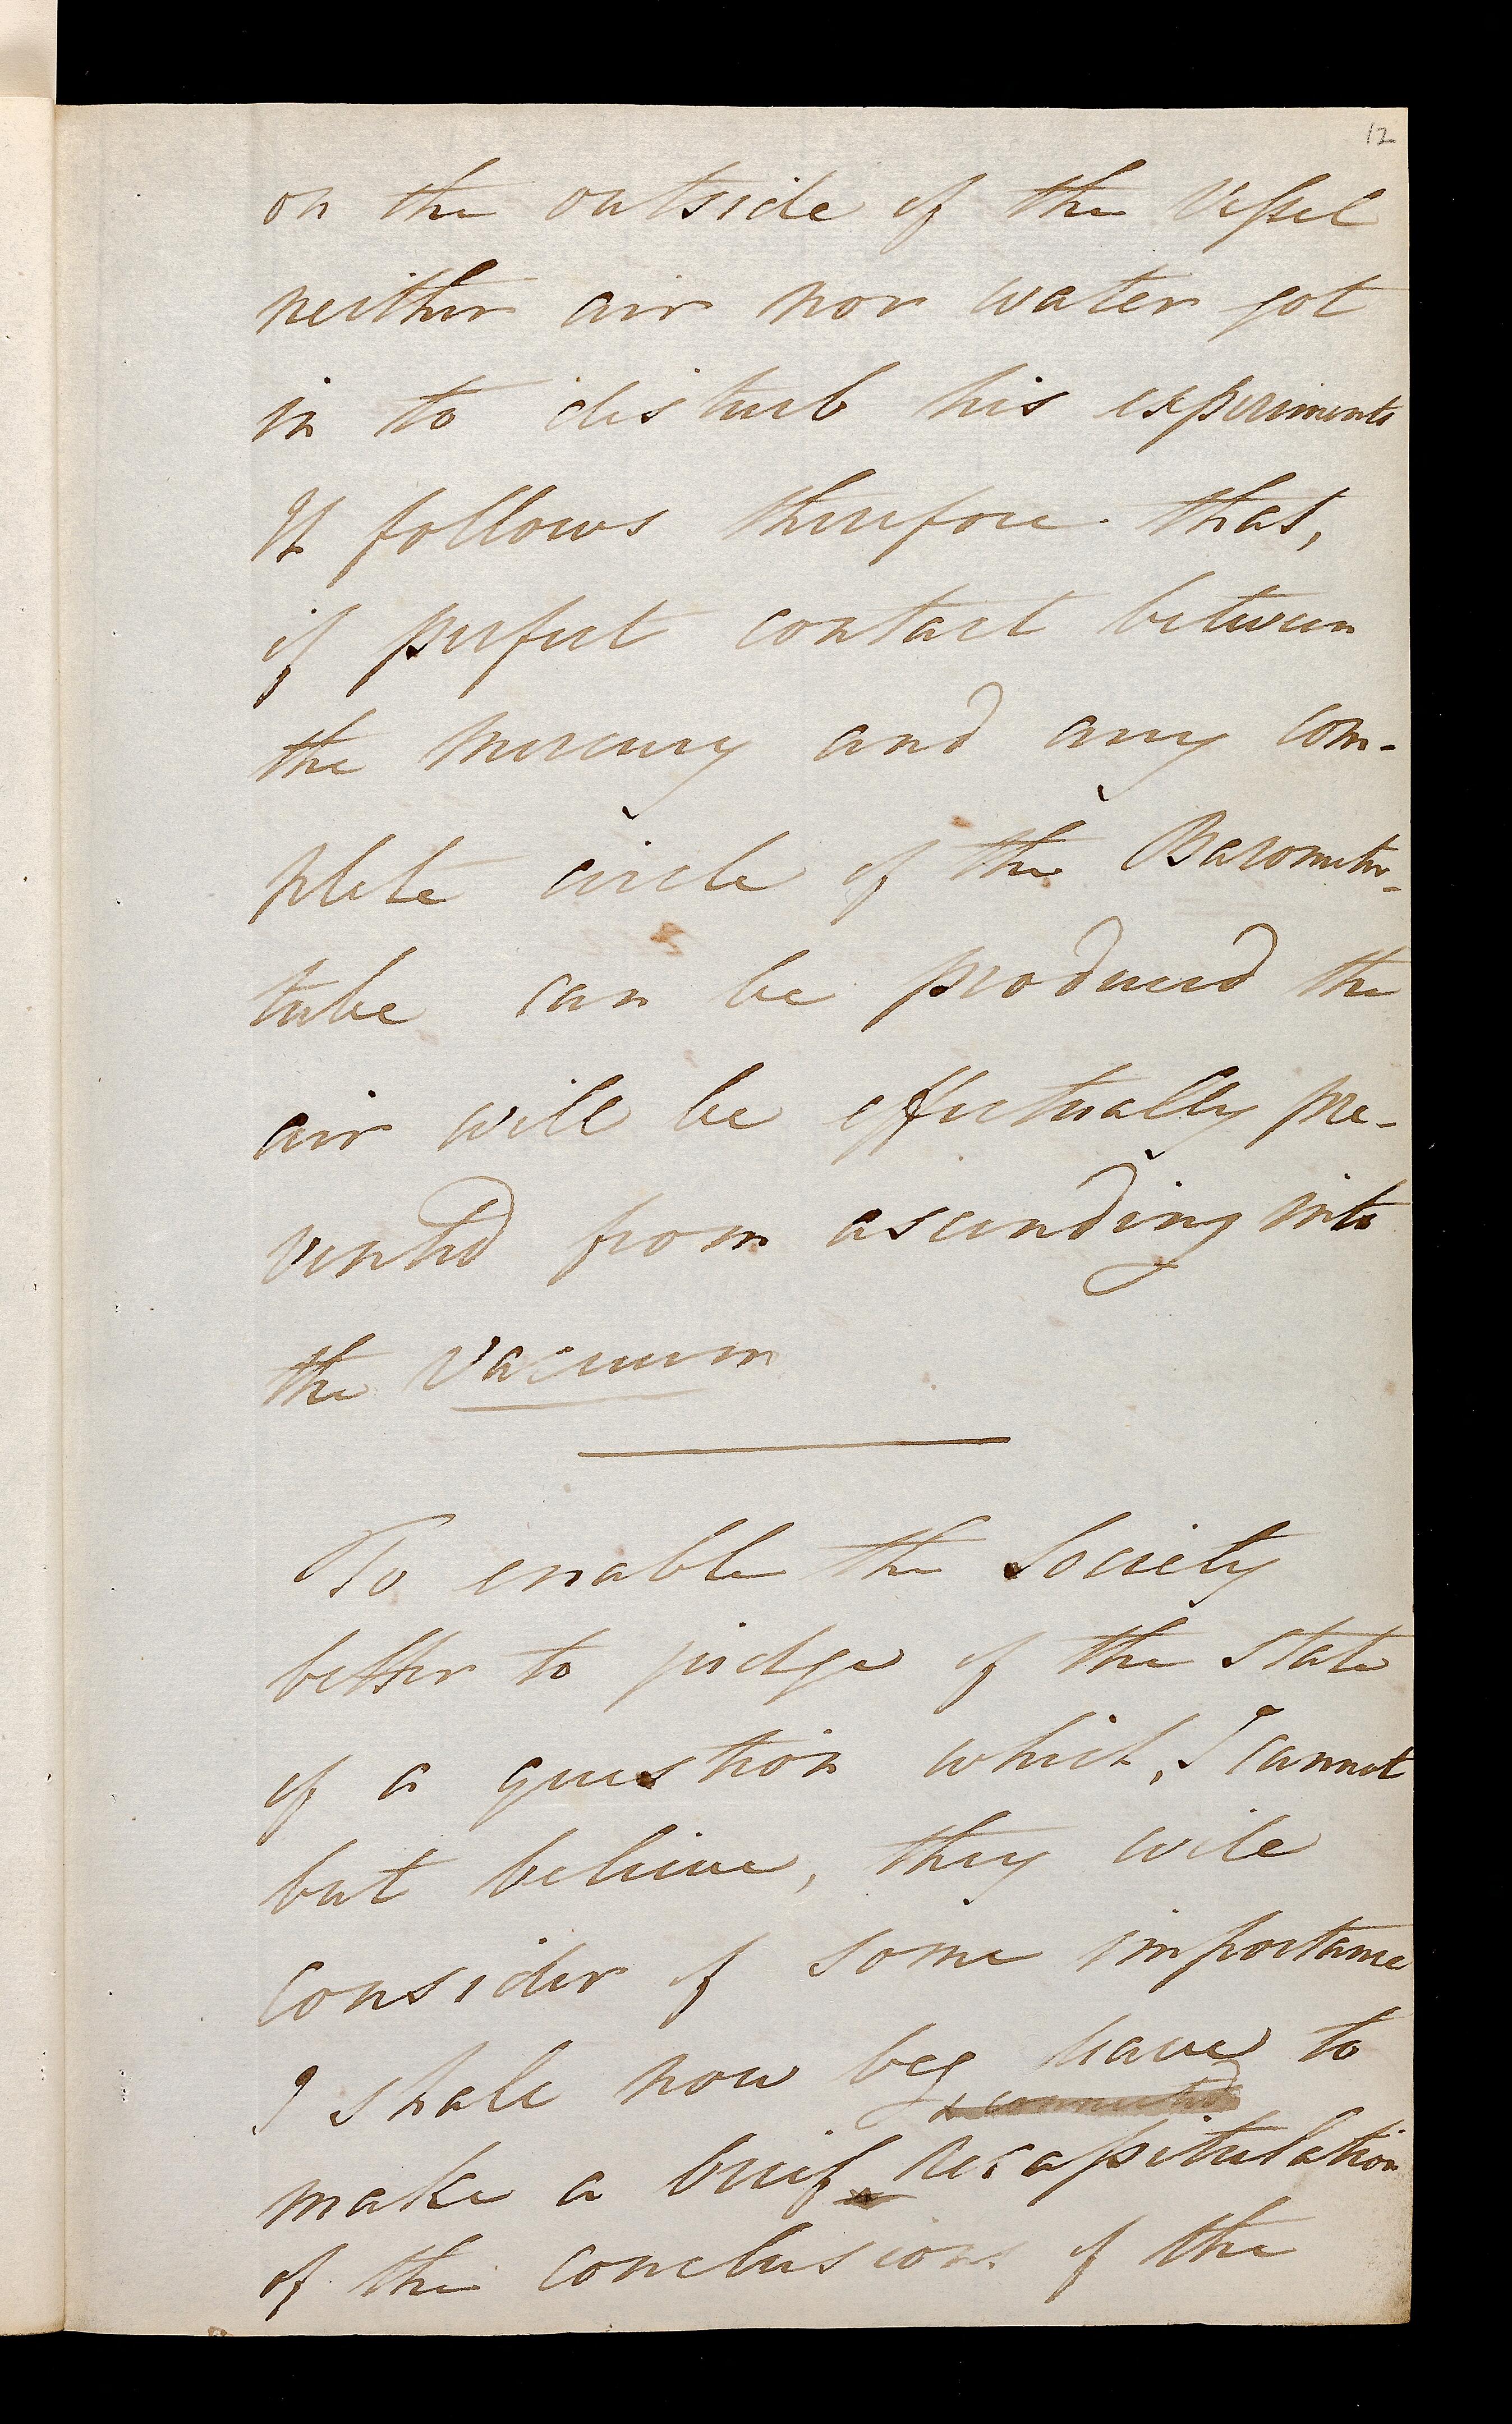 12
on the outside of the Vessel
neither air nor water got
in to disturb his experiments
It follows therefore that,
if perfect contact between
the mercury and any com-
plete circle of the Barometer-
tube can be produced the
air will be effectually pre-
vented from ascending into
the Vacuum
To enable the Society
better to judge of the state
of a question which, I cannot
but believe, they will
consider of some importance
I shall now beg leave to
make a brief recapitulation
of the conclusions of the